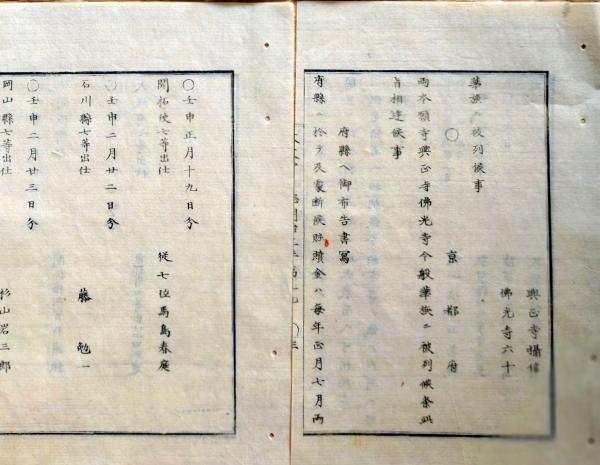 興正寺攝信
佛光寺六十
華族ヘ被列候事
〇京都府
両本願寺興正寺佛光寺今般華族ニ被列候条此
旨相達候事
府縣ヘ御布告書寫
府縣ヘ拾ヲ及裏断候贖金ハ毎年正月七月両
〇壬申正月十九日分
開拓使七等出仕
從七位馬島春庭
〇壬申二月廿二日分
石川縣七等出仕
藤勉一
〇壬申二月廿三日分
岡山縣七等出仕
杉山岩三郎